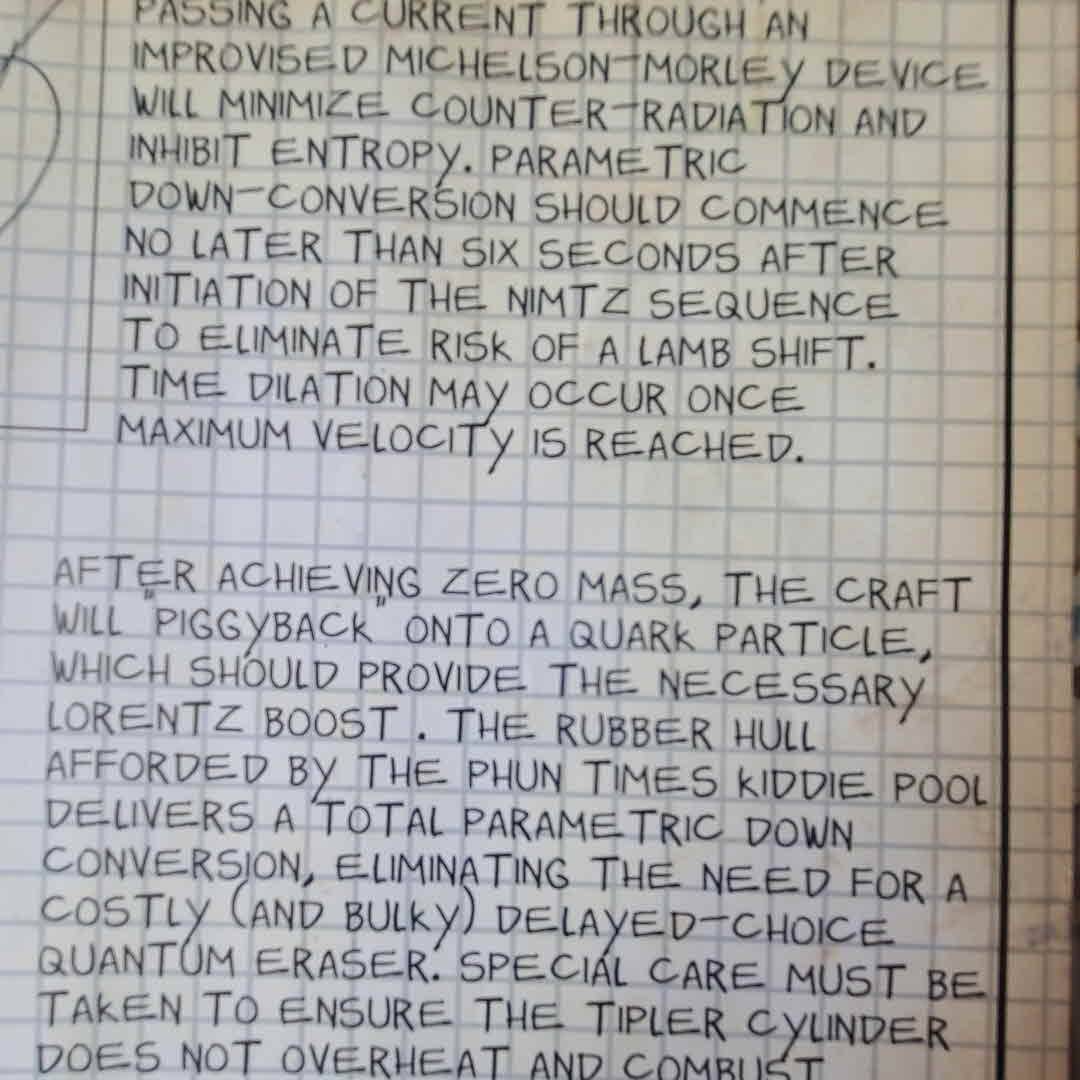 PASSING A CURRENT THROUGH AN
IMPROVISED MICHELSON-MORLEY DEVICE
WILL MINIMIZE COUNTER-RADIATION AND
INHIBIT ENTROPY. PARAMETRIC
DOWN-CONVERSION SHOULD COMMENCE
NO LATER THAN SIX SECONDS AFTER
INITIATION OF THE NIMTZ SEQUENCE
TO ELIMINATE RISK OF A LAMB SHIFT.
TIME DILATION MAY OCCUR ONCE
MAXIMUM VELOCITY IS REACHED.
AFTER ACHIEVING ZERO MASS, THE CRAFT
WILL "PIGGYBACK" ONTO A QUARK PARTICLE,
WHICH SHOULD PROVIDE THE NECESSARY
LORENTZ BOOST. THE RUBBER HULL
AFFORDED BY THE PHUN TIMES KIDDIE POOL
DELIVERS A TOTAL PARAMETRIC DOWN
CONVERSION, ELIMINATING THE NEED FOR A
COSTLY (AND BULKY) DELAYED-CHOICE
QUANTUM ERASER. SPECIAL CARE MUST BE
TAKEN TO ENSURE THE TIPLER CYLINDER
DOES NOT OVERHEAT AND COMBUST